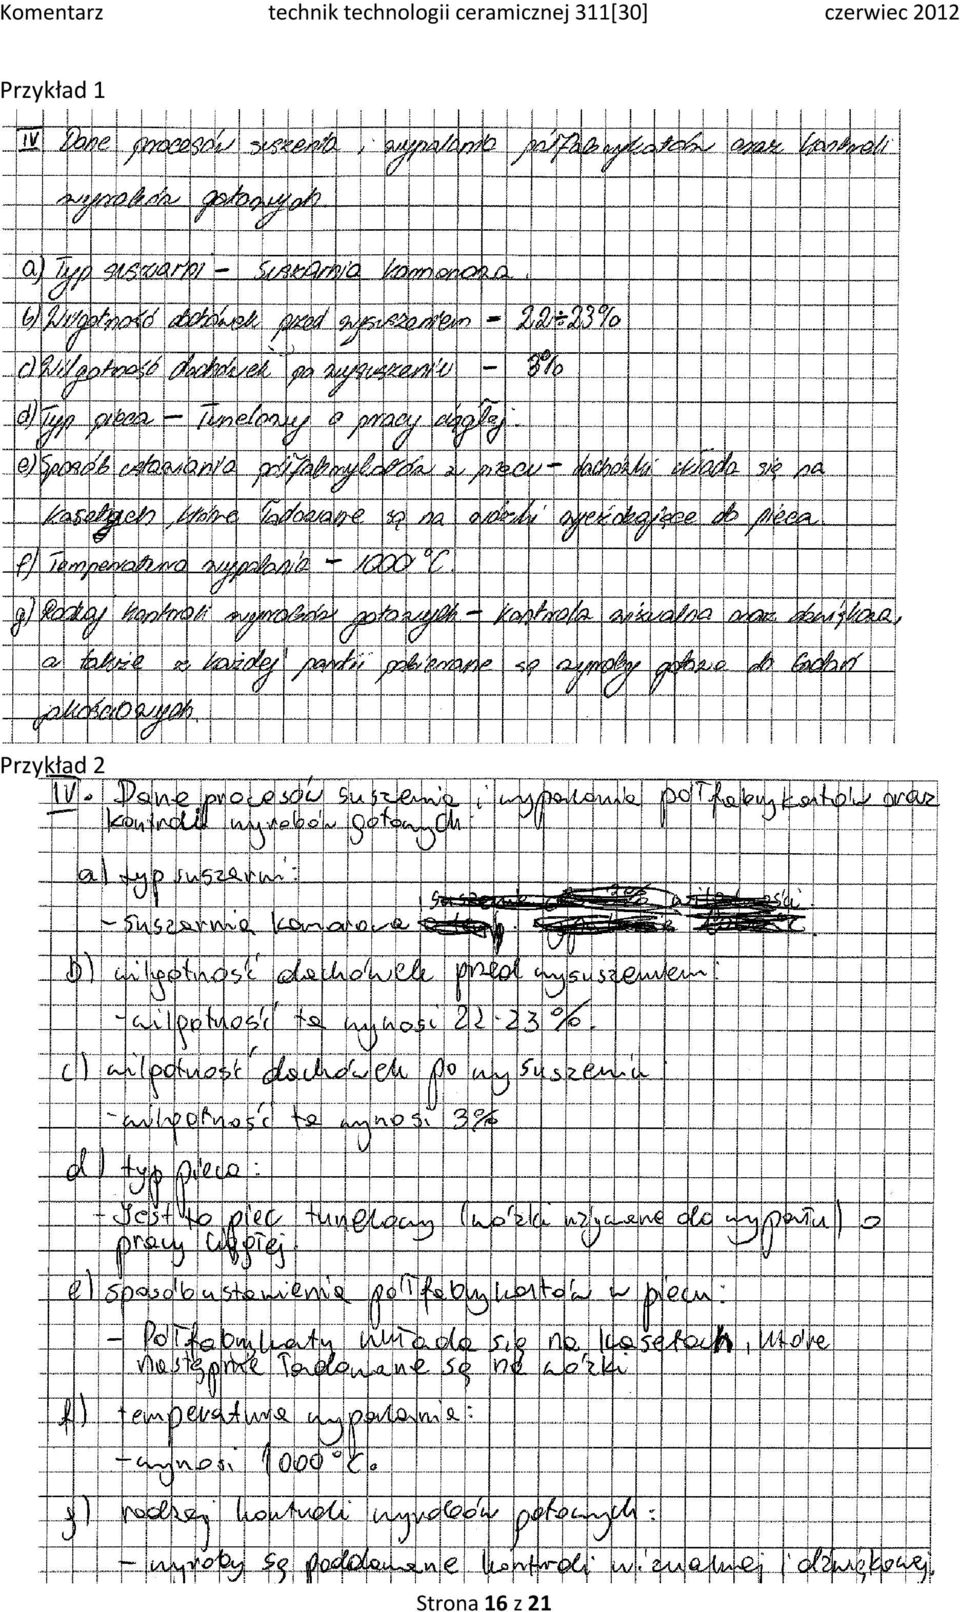 Komentarz technik technologii ceramicznej 311[30] czerwiec 2012
Przykład 1
IV Dane procesów suszenia i wypalania półfabrykatów oraz kontroli
wyrobów gotowych.
a) Typ suszarni - Suszarnia komorowa.
b) Wilgotność dachówek przed wysuszeniem - 22÷23%
c) Wilgotność dachówek po wysuszeniu - 3%
d) Typ pieca - Tunelowy o pracy ciągłej.
e) Sposób ustawiania półfabrykatów w piecu - dachówki układa się na
kasetych, które ładowane są na wózki wjeżdżające do pieca
f) Temperatura wypalania - 1000°C.
g) Rodzaj kontroli wyrobów gotowych - kontrola wizualna oraz dźwiękowa,
a także z każdej partii pobierane są wyroby gotowe do badań
jakościowych.
Przykład 2
IV. Dane procesów suszenia i wypalania półfabrykatów oraz
kontroli wyrobów gotowych:
a) typ suszarni:
- suszarnia komorowa
b) wilgotność dachówek przed wysuszeniem:
- wilgotność ta wynosi 22-23%.
c) wilgotność dachówek po wysuszeniu:
- wilgotność ta wynosi 3%
d) typ pieca:
- Jest to piec tunelowy (wózki używane do wypału) o
pracy ciągłej.
e) sposób ustawienia półfabrykatów w piecu:
- Półfabrykaty układa się na kasetach, które
następnie ładowane są na wózki
f) temperatura wypalania:
- wynosi 1000°C.
g) rodzaj kontroli wyrobów gotowych:
- wyroby są poddawane kontroli wizualnej i dźwiękowej.
Strona 16 z 21